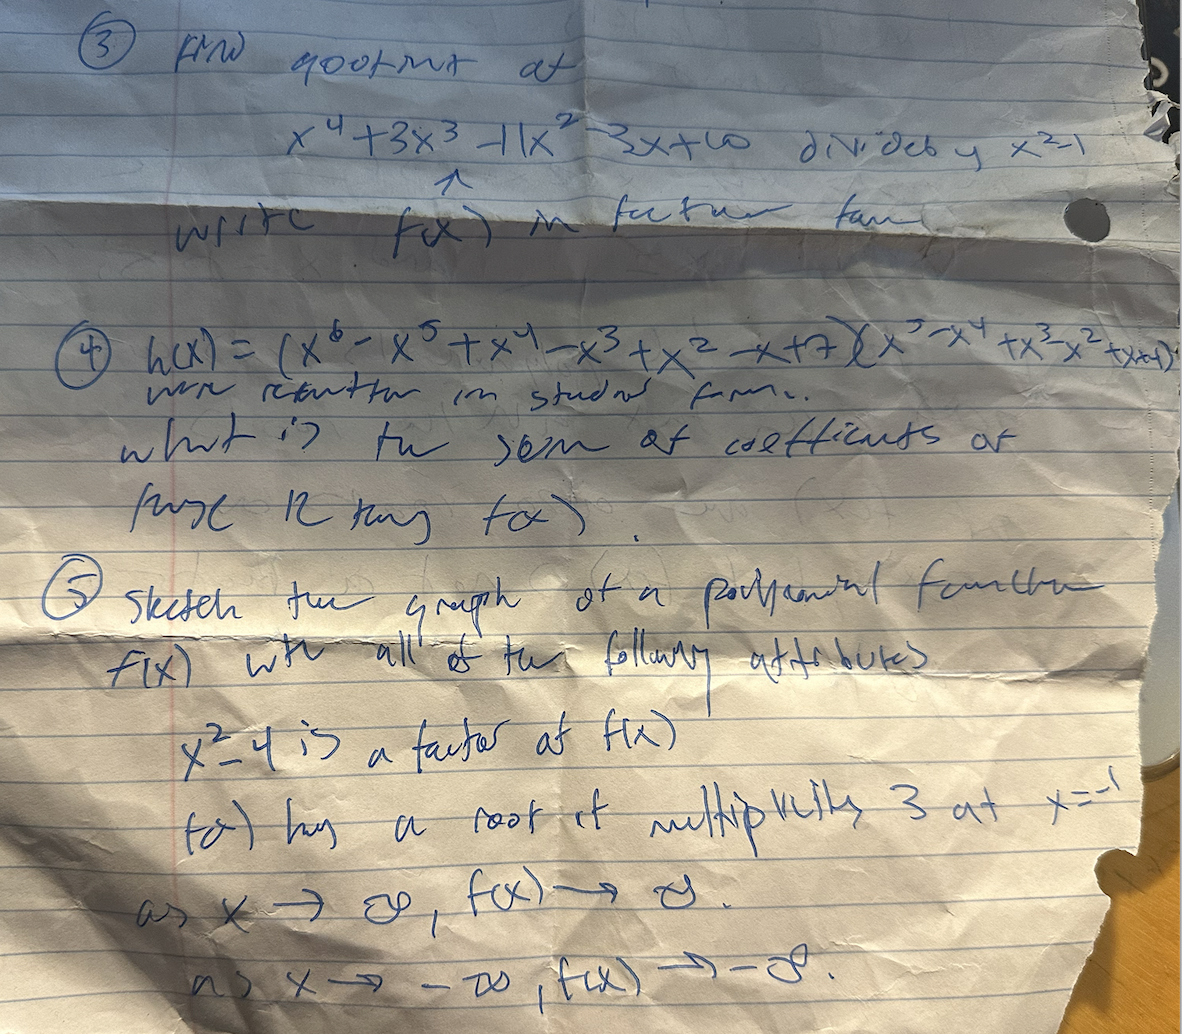 ③ Find quotient of
x⁴+3x³-11x²-3x+10 divided by x²-1
↑
write f(x) in factored form
④ h(x) = (x⁶-x⁵+x⁴-x³+x²-x+7)(x⁵-x⁴+x³-x²+x+1)
were rewritten in form.
what is the sum of coefficients of
12 f(x).
⑤ Sketch the graph of a polynomial function
f(x) with all of the following attributes
x²-4 is a factor of f(x)
f(x) has a root of multiplicity 3 at x=-1
as x → ∞, f(x) → ∞.
as x → -∞, f(x) → -∞.